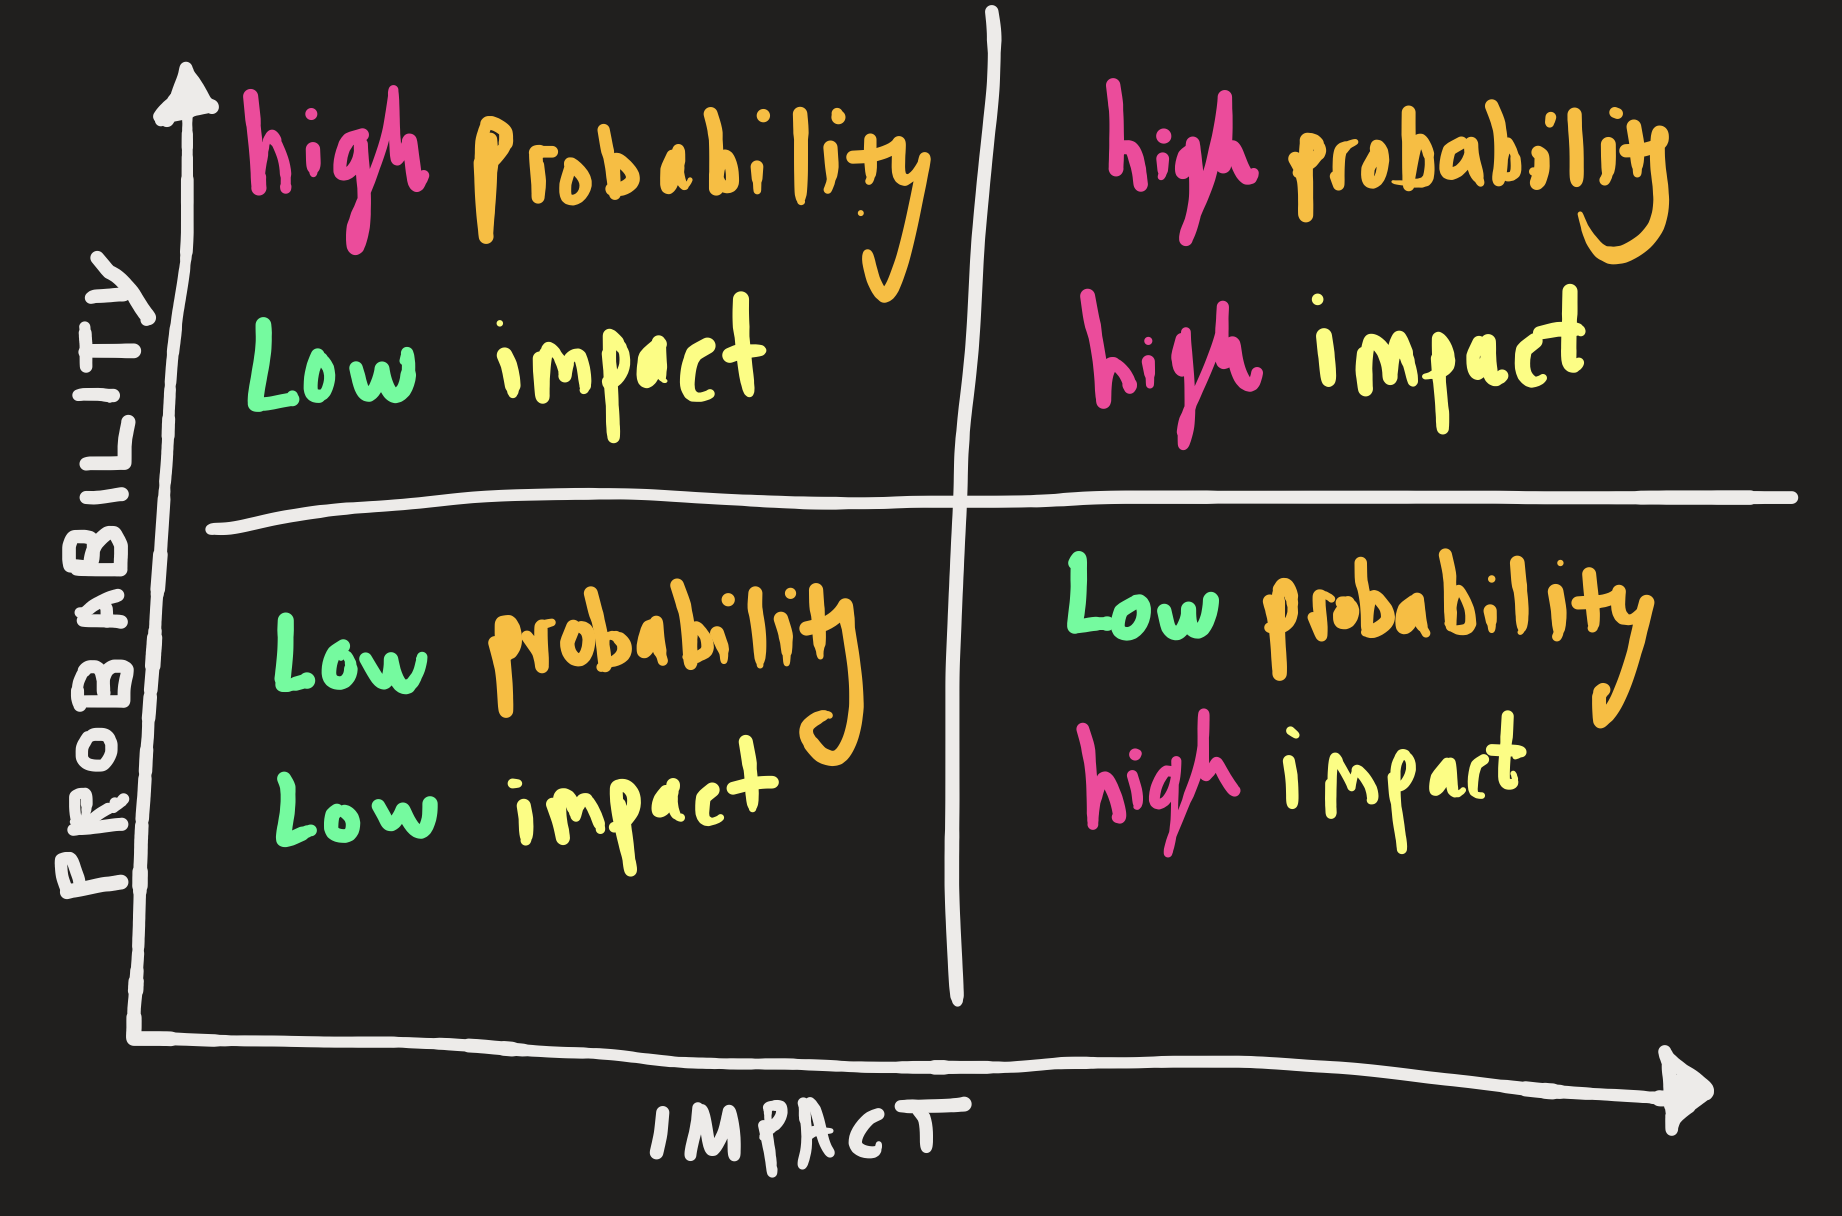 high probability
Low impact
high probability
high impact
Low probability
Low impact
Low probability
high impact
PROBABILITY
IMPACT